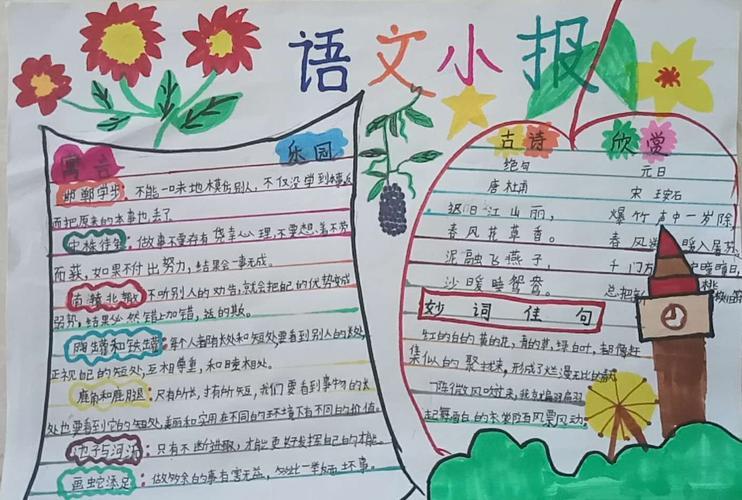 语文小报
寓言 乐园
邯郸学步：不能一味地模仿别人，不仅没学到本领反
而把原来的本事也丢了
守株待兔：做事不要存有侥幸心理，不要想着不劳
而获，如果不付出努力，结果会一事无成。
南辕北辙：不听别人的劝告，就会把自己的优势变成
弱势，结果必然错上加错，远的欺。
陶罐和铁罐：每个人都有长处和短处要看到别人的长处
正视自己的短处，互相尊重，和睦相处。
鹿角和鹿腿：尺有所长，寸有所短，我们要看到事物的长
处也要看到它的短处，美丽和实用在不同的环境下有不同的价值。
池子与河流：只有不断进取，才能更好发挥自己的才能。
画蛇添足：做多余的事有害无益，
古诗 欣赏
绝句
唐 杜甫
迟日江山丽，
春风花草香。
泥融飞燕子，
沙暖睡鸳鸯。
元日
宋 王安石
爆竹声中一岁除
春风 暖入屠苏
千门万 曈曈日，
总把 桃
妙词佳句
红的白的黄的花，青的草，绿的叶，都像赶
集似的聚拢来，形成了烂漫无比的
一阵微风吹过来，我就翩翩
起舞雪白的衣裳随风飘动。